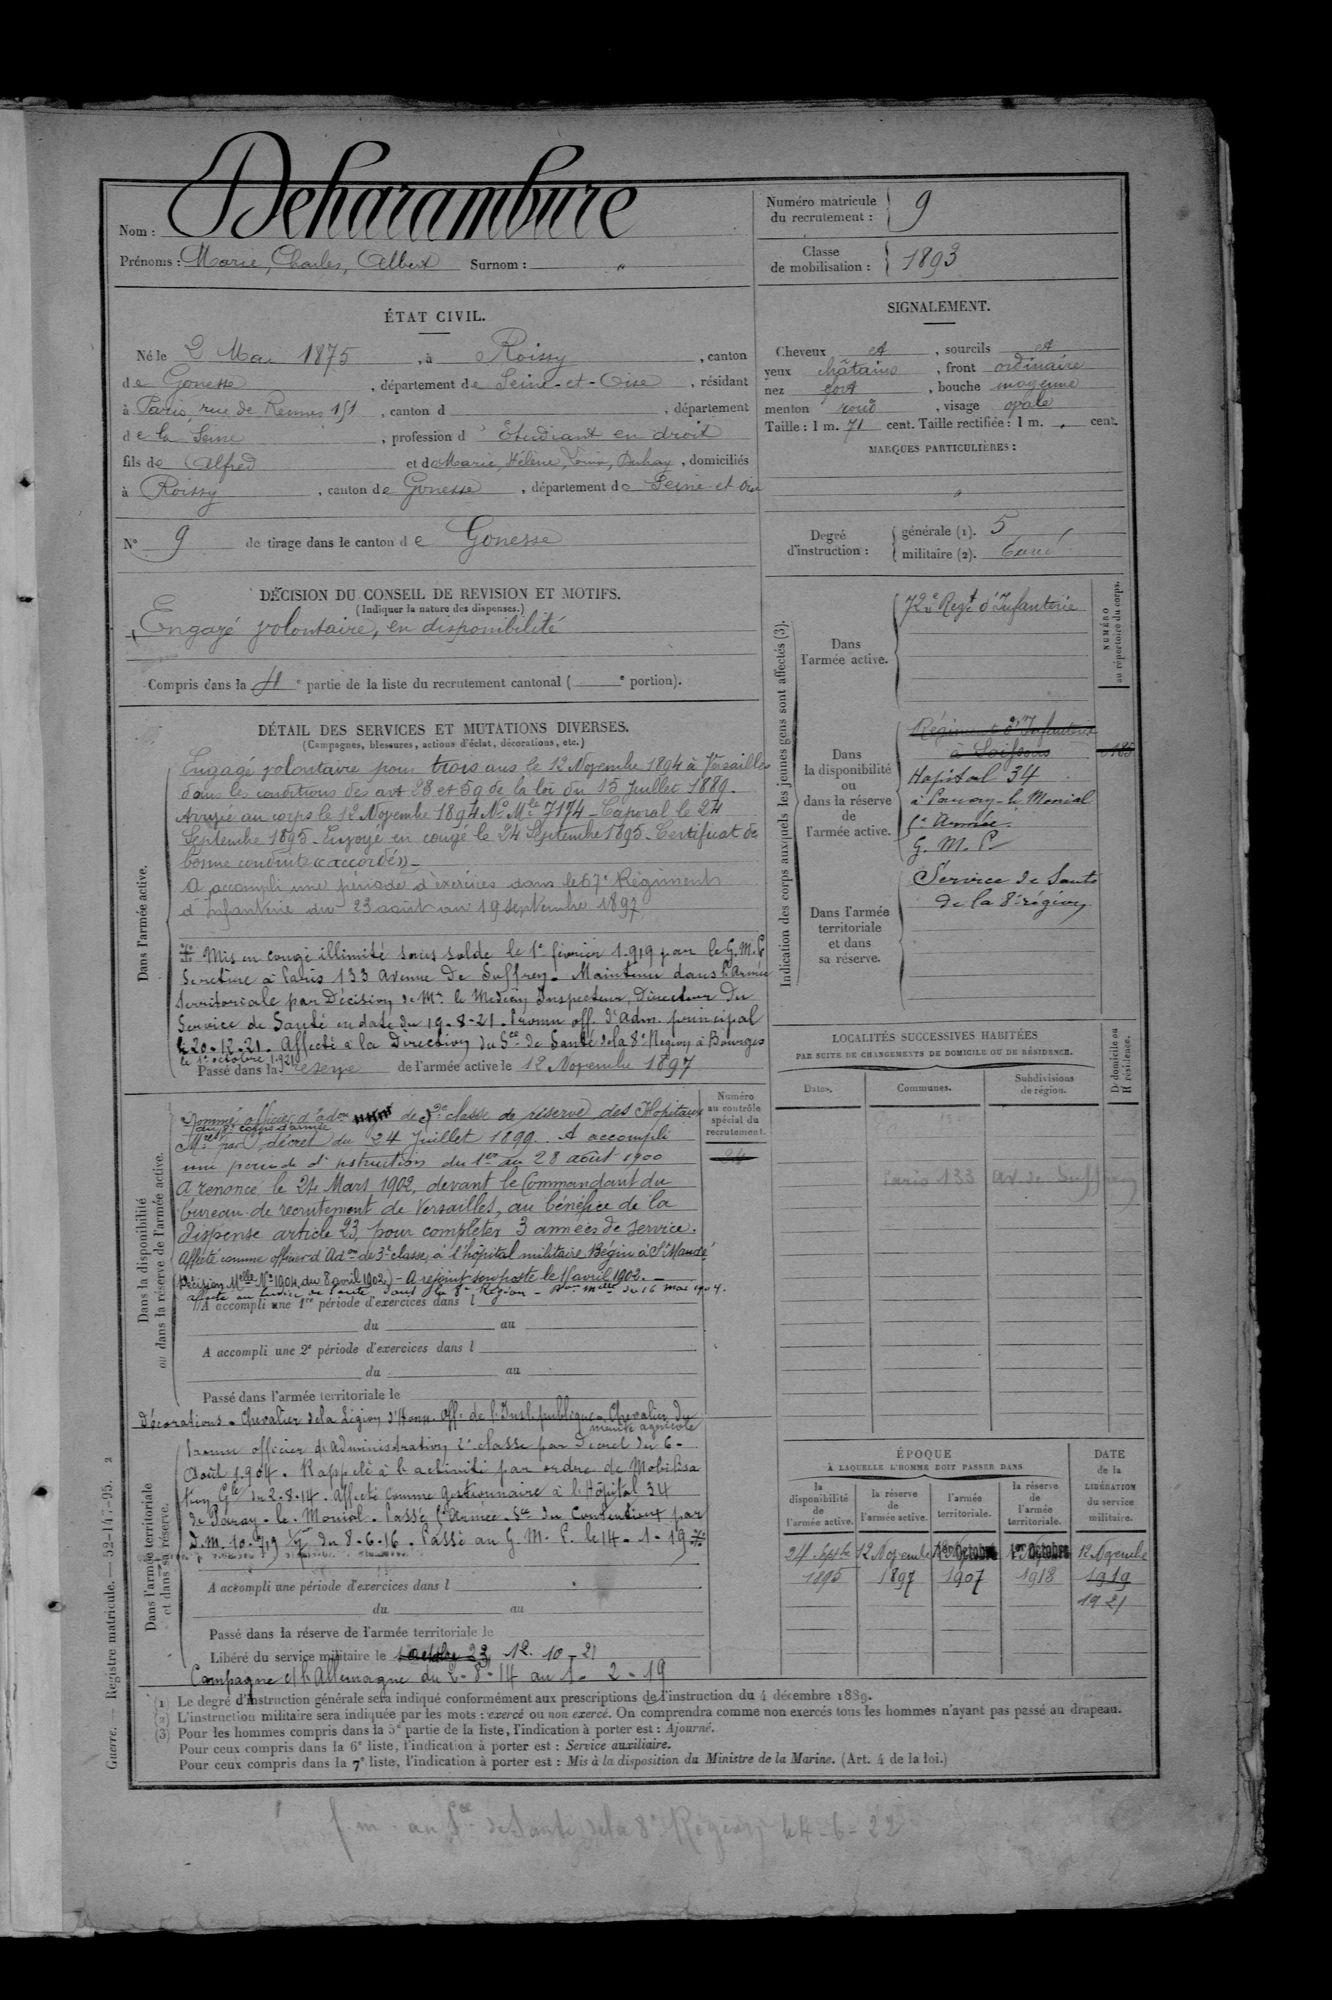 Nom : Deharambure
Prénoms : Marie, Charles, Albert Surnom : "
Numéro matricule du recrutement : 9
Classe de mobilisation : 1893
ÉTAT CIVIL.
Né le 2 Mai 1875, à Roissy, canton
de Gonesse, département de Seine-et-Oise, résidant
à Paris, rue de Rennes 151, canton d , département
de la Seine, profession d'Etudiant en droit
fils de Alfred et de Marie, Hélène, Duhay, domiciliés
à Roissy, canton de Gonesse, département de Seine-et-Oise
N° 9 de tirage dans le canton de Gonesse
DÉCISION DU CONSEIL DE REVISION ET MOTIFS.
(Indiquer la nature des dispenses.)
Engagé volontaire, en disponibilité
Compris dans la 4e partie de la liste du recrutement cantonal ( e portion).
SIGNALEMENT.
Cheveux et, sourcils et
yeux châtains, front ordinaire
nez fort, bouche moyenne
menton rond, visage ovale
Taille : 1 m. 71 cent. Taille rectifiée : 1 m. cent.
MARQUES PARTICULIÈRES :
"
Degré d'instruction : générale (1). 5
militaire (2).
DÉTAIL DES SERVICES ET MUTATIONS DIVERSES.
(Campagnes, blessures, actions d'éclat, décorations, etc.)
Dans l'armée active.
Engagé volontaire pour trois ans le 12 Novembre 1894 à Versailles
dans les conditions des art 28 et 59 de la loi du 15 Juillet 1889.
Arrivé au corps le 12 Novembre 1894 No Mle 7174 - Caporal le 24
Septembre 1895 - Envoyé en congé le 24 Septembre 1895 - Certificat de
bonne conduite « accordé » -
A accompli une période d'exercices dans le 67e Régiment
d'Infanterie du 23 août au 19 septembre 1897
Mis en congé illimité sans solde le 1er février 1919 par le G.M.P.
Se retire à Paris 133 Avenue de Suffren. Maintenu dans l'Armée
Territoriale par Décision de Mr le Médecin Inspecteur, Directeur du
Service de Santé en date du 19-8-21. Promu off. d'adm. principal
le 20-12-21. Affecté à la Direction du Sce de Santé de la 8e Région à Bourges
le 1er octobre 1921
Passé dans la réserve de l'armée active le 12 Novembre 1897
Dans la disponibilité ou dans la réserve de l'armée active.
Numéro au contrôle spécial du recrutement.
Nommé officier d'adon de 3e classe de réserve des Hôpitaux
du 8e corps d'armée
Mres par décret du 24 Juillet 1899. A accompli
une période d'instruction du 1er au 28 août 1900
A renoncé le 24 Mars 1902, devant le Commandant du
bureau de recrutement de Versailles, au bénéfice de la
dispense article 23, pour compléter 3 années de service.
Affecté comme officier d'Adon de 3e classe, à l'hôpital militaire Bégin à St Mandé
(Décision Melle No 1904, du 8 avril 1902) - A rejoint son poste le 15 avril 1902. -
affecté au service de santé dans la 8e Région - Don Melle du 16 mai 1904.
A accompli une 1re période d'exercices dans l
du au
A accompli une 2e période d'exercices dans l
du au
Passé dans l'armée territoriale le
Décorations - Chevalier de la Légion d'Honn. Off. de l'Inst. publique - Chevalier du
mérite agricole
Dans l'armée territoriale et dans sa réserve.
Promu officier d'administration 2e classe par Décret du 6-
Août 1904. Rappelé à l'activité par ordre de Mobilisa
tion Gle du 2-8-14. Affecté comme gestionnaire à l'Hôpital 34
de Paray-le-Monial. Passé 5e Armée - Sce du Contentieux par
D.M. 10.719 du 8-6-16. Passé au G.M.P. le 14-1-19
A accompli une période d'exercices dans l
du au
Passé dans la réserve de l'armée territoriale le
Libéré du service militaire le 12.10-21
Campagne c/ l'Allemagne du 2-8-14 au 1-2-19
Indication des corps auxquels les jeunes gens sont affectés (3).
NUMÉRO au répertoire du corps.
Dans l'armée active.
72e Regt d'Infanterie
Dans la disponibilité ou dans la réserve de l'armée active.
Régiment d'Infanterie
à Soissons
Hopital 34
à Paray-le-Monial
5e Armée
G. M. P.
Dans l'armée territoriale et dans sa réserve.
Service de Santé
de la 8e région
LOCALITÉS SUCCESSIVES HABITÉES
PAR SUITE DE CHANGEMENTS DE DOMICILE OU DE RÉSIDENCE.
Dates. Communes. Subdivisions de région. D domicile ou R résidence.
Paris 133 av. de Suffren
ÉPOQUE
À LAQUELLE L'HOMME DOIT PASSER DANS
la disponibilité de l'armée active.
la réserve de l'armée active.
l'armée territoriale.
la réserve de l'armée territoriale.
DATE de la LIBÉRATION du service militaire.
24 Septbre 12 Novembre 1er Octobre 1er Octobre 12 Novembre
1895 1897 1907 1913 1919
1921
(1) Le degré d'instruction générale sera indiqué conformément aux prescriptions de l'instruction du 4 décembre 1889.
(2) L'instruction militaire sera indiquée par les mots : exercé ou non exercé. On comprendra comme non exercés tous les hommes n'ayant pas passé au drapeau.
(3) Pour les hommes compris dans la 5e partie de la liste, l'indication à porter est : Ajourné.
Pour ceux compris dans la 6e liste, l'indication à porter est : Service auxiliaire.
Pour ceux compris dans la 7e liste, l'indication à porter est : Mis à la disposition du Ministre de la Marine. (Art. 4 de la loi.)
Guerre. — Registre matricule. — 52-147-95. 2
f. m. au Sce de Santé de la 8e Région le 4-6-22